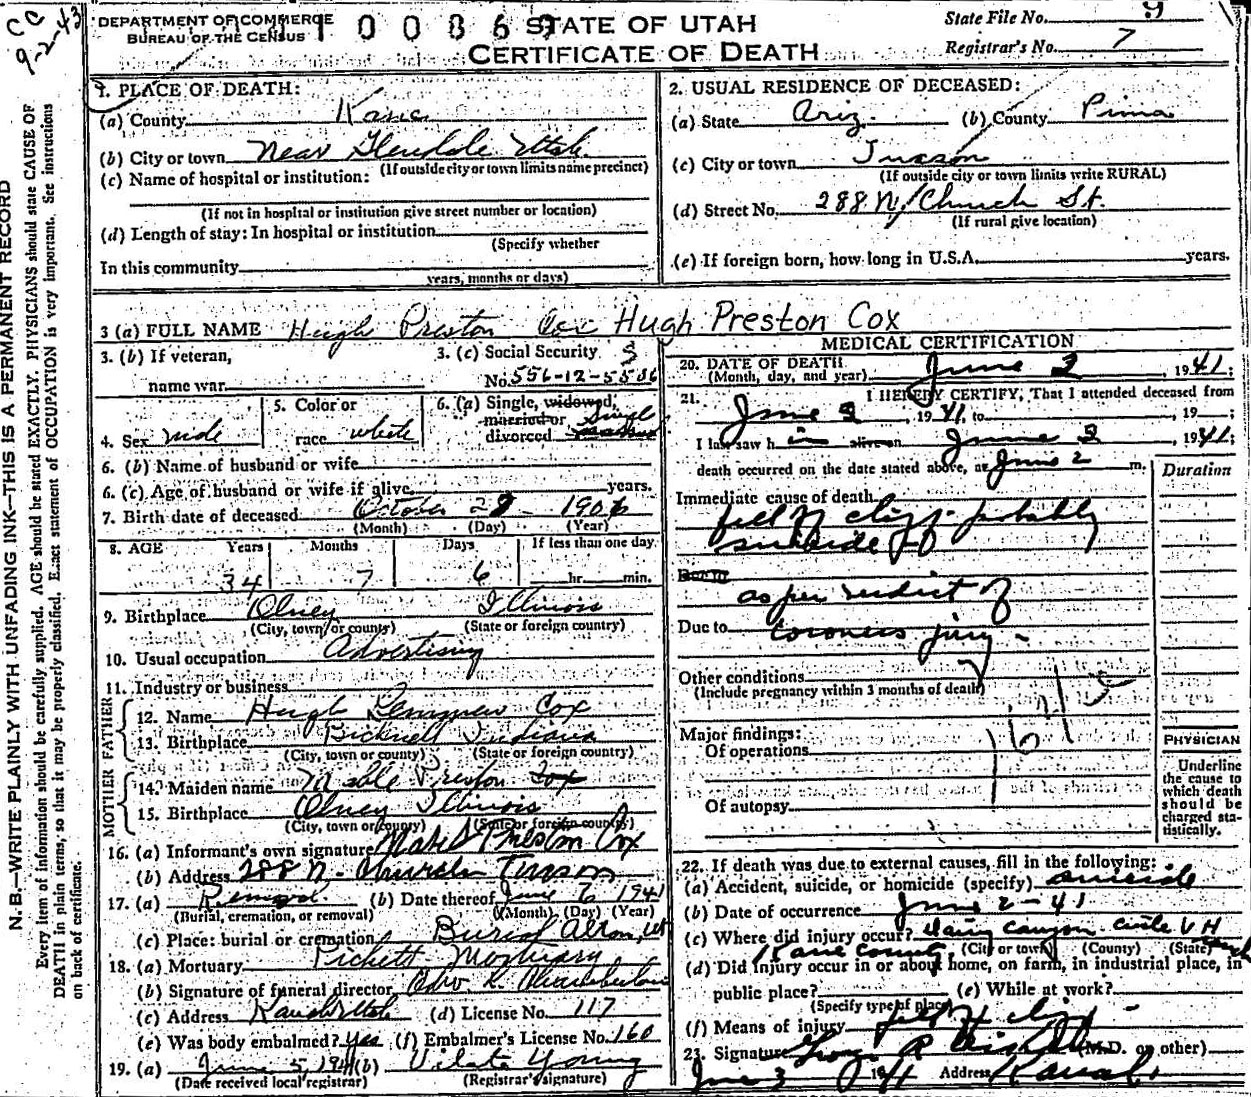 CC
9-2-43
DEPARTMENT OF COMMERCE
BUREAU OF THE CENSUS
STATE OF UTAH
CERTIFICATE OF DEATH
State File No. 9
Registrar's No. 7
N. B.—WRITE PLAINLY WITH UNFADING INK—THIS IS A PERMANENT RECORD
Every item of information should be carefully supplied. AGE should be stated EXACTLY. PHYSICIANS should state CAUSE OF
DEATH in plain terms, so that it may be properly classified. Exact statement of OCCUPATION is very important. See instructions
on back of certificate.
1. PLACE OF DEATH:
(a) County Kane
(b) City or town Near Glendale Utah
(If outside city or town limits name precinct)
(c) Name of hospital or institution:
(If not in hospital or institution give street number or location)
(d) Length of stay: In hospital or institution
(Specify whether
In this community
years, months or days)
2. USUAL RESIDENCE OF DECEASED:
(a) State Ariz. (b) County Pima
(c) City or town Tucson
(If outside city or town limits write RURAL)
(d) Street No. 288 N. Church St.
(If rural give location)
(e) If foreign born, how long in U.S.A. years.
3 (a) FULL NAME Hugh Preston Cox Hugh Preston Cox
3. (b) If veteran,
name war
3. (c) Social Security
No. 556-12-5586
4. Sex male
5. Color or
race white
6. (a) Single, widowed,
married or
divorced Single
6. (b) Name of husband or wife
6. (c) Age of husband or wife if alive years.
7. Birth date of deceased October 28 - 1906
(Month) (Day) (Year)
8. AGE Years Months Days If less than one day
34 7 6 hr. min.
9. Birthplace Olney Illinois
(City, town or county) (State or foreign country)
10. Usual occupation Advertising
11. Industry or business
FATHER
12. Name Hugh Cox
13. Birthplace Bicknell Indiana
(City, town or county) (State or foreign country)
MOTHER
14. Maiden name Mable Preston Cox
15. Birthplace Olney Illinois
(City, town or county) (State or foreign country)
16. (a) Informant's own signature Mabel Preston Cox
(b) Address 288 N. Church Tucson
17. (a) Removal (b) Date thereof June 6 1941
(Burial, cremation, or removal) (Month) (Day) (Year)
(c) Place: burial or cremation Burial Alton, Ut
18. (a) Mortuary Pickett Mortuary
(b) Signature of funeral director L. Chamberlain
(c) Address Kanab Utah (d) License No. 117
(e) Was body embalmed? yes (f) Embalmer's License No. 160
19. (a) June 5, 1941 (b) Vilate Young
(Date received local registrar) (Registrar's signature)
MEDICAL CERTIFICATION
20. DATE OF DEATH
(Month, day, and year) June 2, 1941;
21. I HEREBY CERTIFY, That I attended deceased from
June 3, 1941, to , 19 ;
I last saw him alive on June 3, 1941;
death occurred on the date stated above, at June 2 m.
Duration
Immediate cause of death
fell of cliff - probably
suicide
Due to
as per verdict of
Due to coroners jury -
Other conditions
(Include pregnancy within 3 months of death)
Major findings:
Of operations
Of autopsy
PHYSICIAN
Underline
the cause to
which death
should be
charged sta-
tistically.
22. If death was due to external causes, fill in the following:
(a) Accident, suicide, or homicide (specify) suicide
(b) Date of occurrence June 2-41
(c) Where did injury occur?
Kane County (City or town) (County) (State)
(d) Did injury occur in or about home, on farm, in industrial place, in
public place? (e) While at work?
(Specify type of place)
(f) Means of injury fell of cliff -
23. Signature George R (M.D. or other)
June 3 1941 Address Kanab